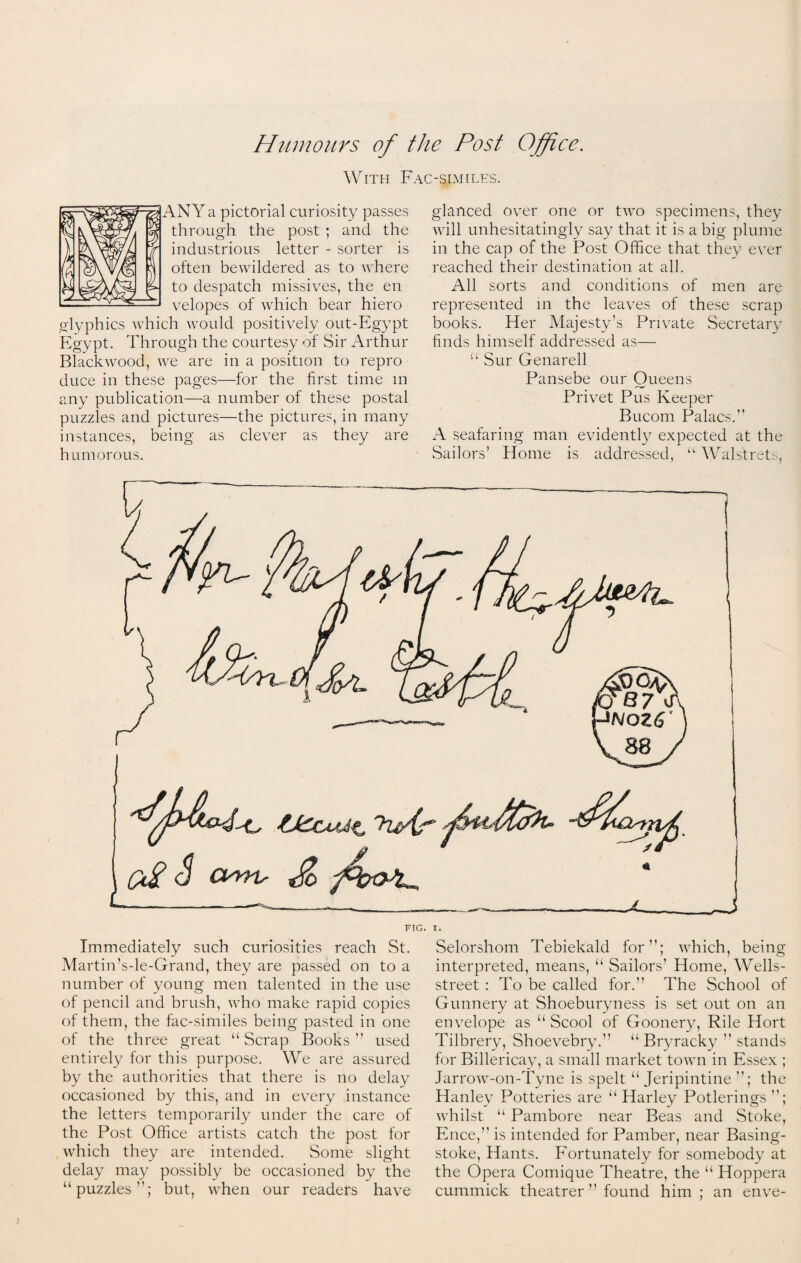 Humours of the Post Office.
With Fac-similes.
MANY a pictorial curiosity passes
through the post ; and the
industrious letter - sorter is
often bewildered as to where
to despatch missives, the en
velopes of which bear hiero
glyphics which would positively out-Egypt
Egypt. Through the courtesy of Sir Arthur
Blackwood, we are in a position to repro
duce in these pages—for the first time in
any publication—a number of these postal
puzzles and pictures—the pictures, in many
instances, being as clever as they are
humorous.
glanced over one or two specimens, they
will unhesitatingly say that it is a big plume
in the cap of the Post Office that they ever
reached their destination at all.
All sorts and conditions of men are
represented in the leaves of these scrap
books. Her Majesty's Private Secretary
finds himself addressed as—
“ Sur Genarell
Pansebe our Queens
Privet Pus Keeper
Bucom Palacs.”
A seafaring man evidently expected at the
Sailors' Home is addressed, “ Walstrets,
Her Majesty The Queen
Windsor Castle
87
NO26
88
Please excuse not putting Stamp.
as I am So poor
FIG. 1.
Immediately such curiosities reach St.
Martin's-le-Grand, they are passed on to a
number of young men talented in the use
of pencil and brush, who make rapid copies
of them, the fac-similes being pasted in one
of the three great “ Scrap Books ” used
entirely for this purpose. We are assured
by the authorities that there is no delay
occasioned by this, and in every instance
the letters temporarily under the care of
the Post Office artists catch the post for
which they are intended. Some slight
delay may possibly be occasioned by the
“ puzzles ”; but, when our readers have
Selorshom Tebiekald for ”; which, being
interpreted, means, “ Sailors' Home, Wells-
street : To be called for.” The School of
Gunnery at Shoeburyness is set out on an
envelope as “ Scool of Goonery, Rile Hort
Tilbrery, Shoevebry.” “ Bryracky ” stands
for Billericay, a small market town in Essex ;
Jarrow-on-Tyne is spelt “ Jeripintine ”; the
Hanley Potteries are “ Harley Potlerings ”;
whilst “ Pambore near Beas and Stoke,
Ence,” is intended for Pamber, near Basing-
stoke, Hants. Fortunately for somebody at
the Opera Comique Theatre, the “ Hoppera
cummick theatrer ” found him ; an enve-